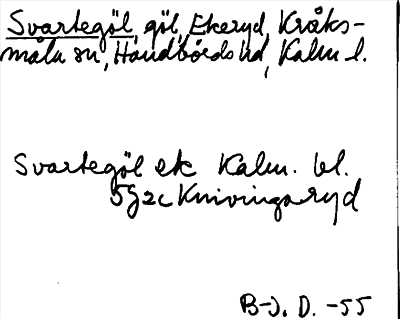 Svartegöl, göl, Ekeryd, Kråks-
måla sn, Handbörds hd, Kalm l.
Svartegöl ek Kalm. bl.
5g2c Knivingaryd
B-J. D. -55